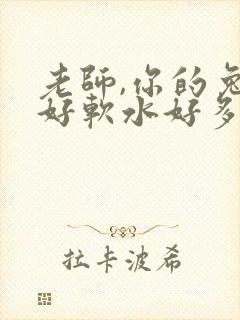 老師,你的兔
好軟水好多
拉卡波希